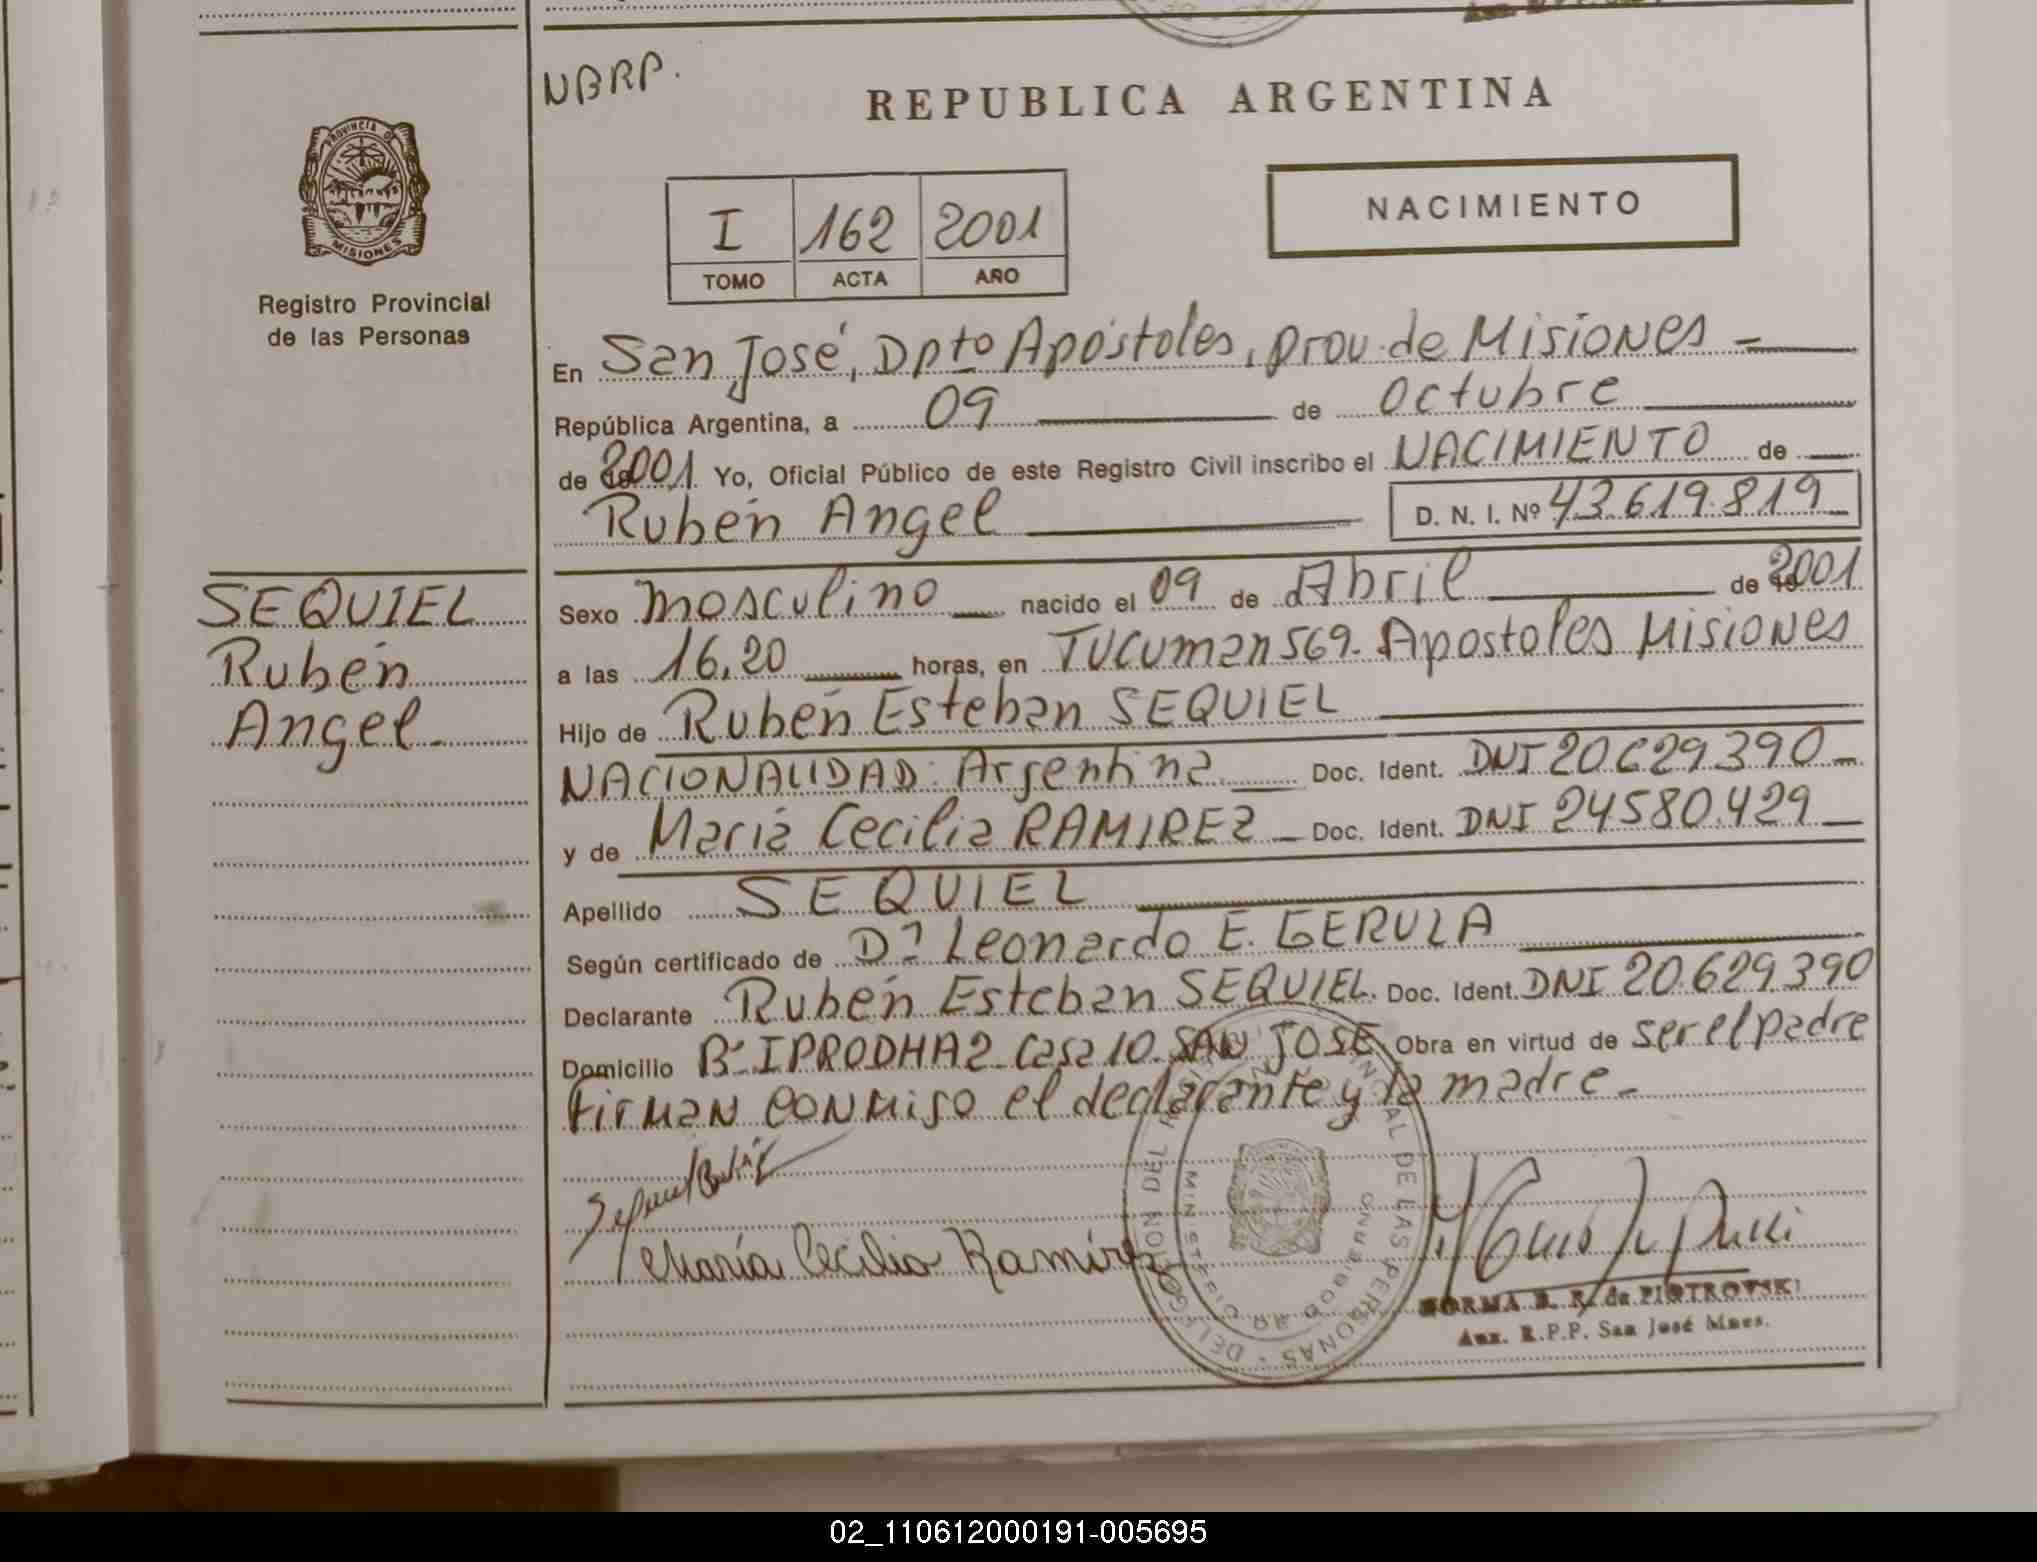 NBRP.
REPUBLICA ARGENTINA
PROVINCIA DE
MISIONES
Registro Provincial
de las Personas
I 162 2001
TOMO ACTA AÑO
NACIMIENTO
En San José, Dpto Apóstoles, prov. de Misiones
República Argentina, a 09 de octubre
de 2001 Yo, Oficial Público de este Registro Civil inscribo el NACIMIENTO de
Rubén Angel D. N. I. Nº 43.619.819
SEQUIEL
Rubén
Angel
Sexo masculino nacido el 09 de Abril de 2001
a las 16,20 horas, en Tucuman 569. Apostoles Misiones
Hijo de Rubén Esteban SEQUIEL
NACIONALIDAD: Argentina Doc. Ident. DNI 20.629.390
y de María Cecilia RAMIREZ Doc. Ident. DNI 24.580.429
Apellido SEQUIEL
Según certificado de Dr Leonardo E. GERULA
Declarante Rubén Esteban SEQUIEL. Doc. Ident. DNI 20.629.390
Domicilio Bº IPRODHA 2 Casa 10. SAN JOSE Obra en virtud de ser el padre
Firman conmigo el declarante y la madre
María Cecilia Ramírez
NORMA B. R. de PIOTROVSKI
Aux. R.P.P. San José Mnes.
02_110612000191-005695